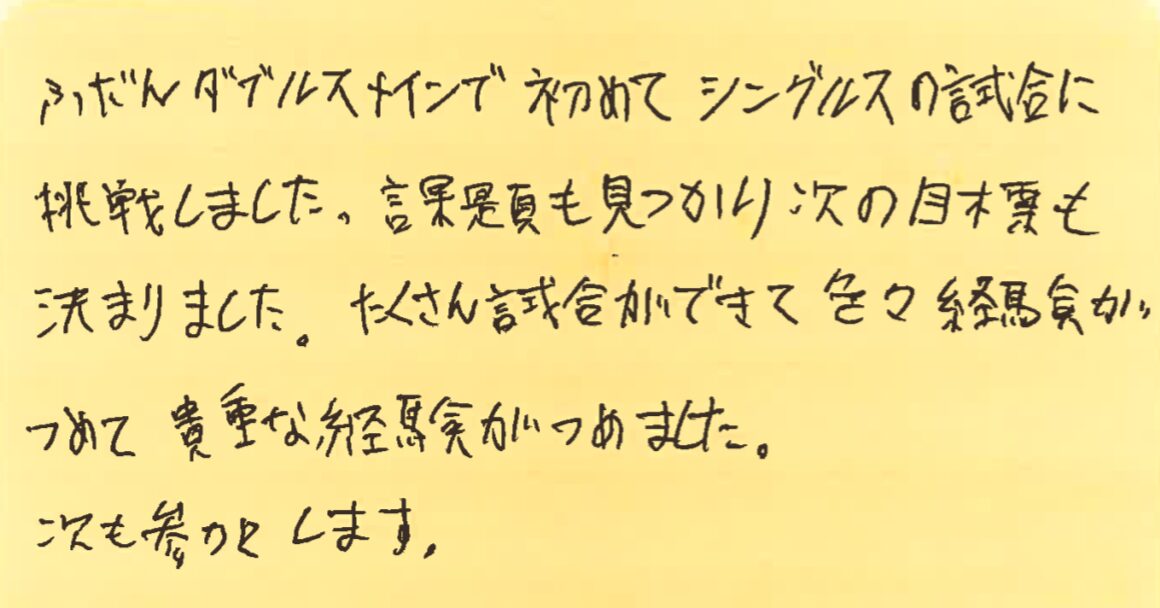 ふだんダブルスメインで初めてシングルスの試合に
挑戦しました、課題も見つかり次の目標も
決まりました。たくさん試合ができて色々経験が
つめて貴重な経験がつめました。
次も参加します。